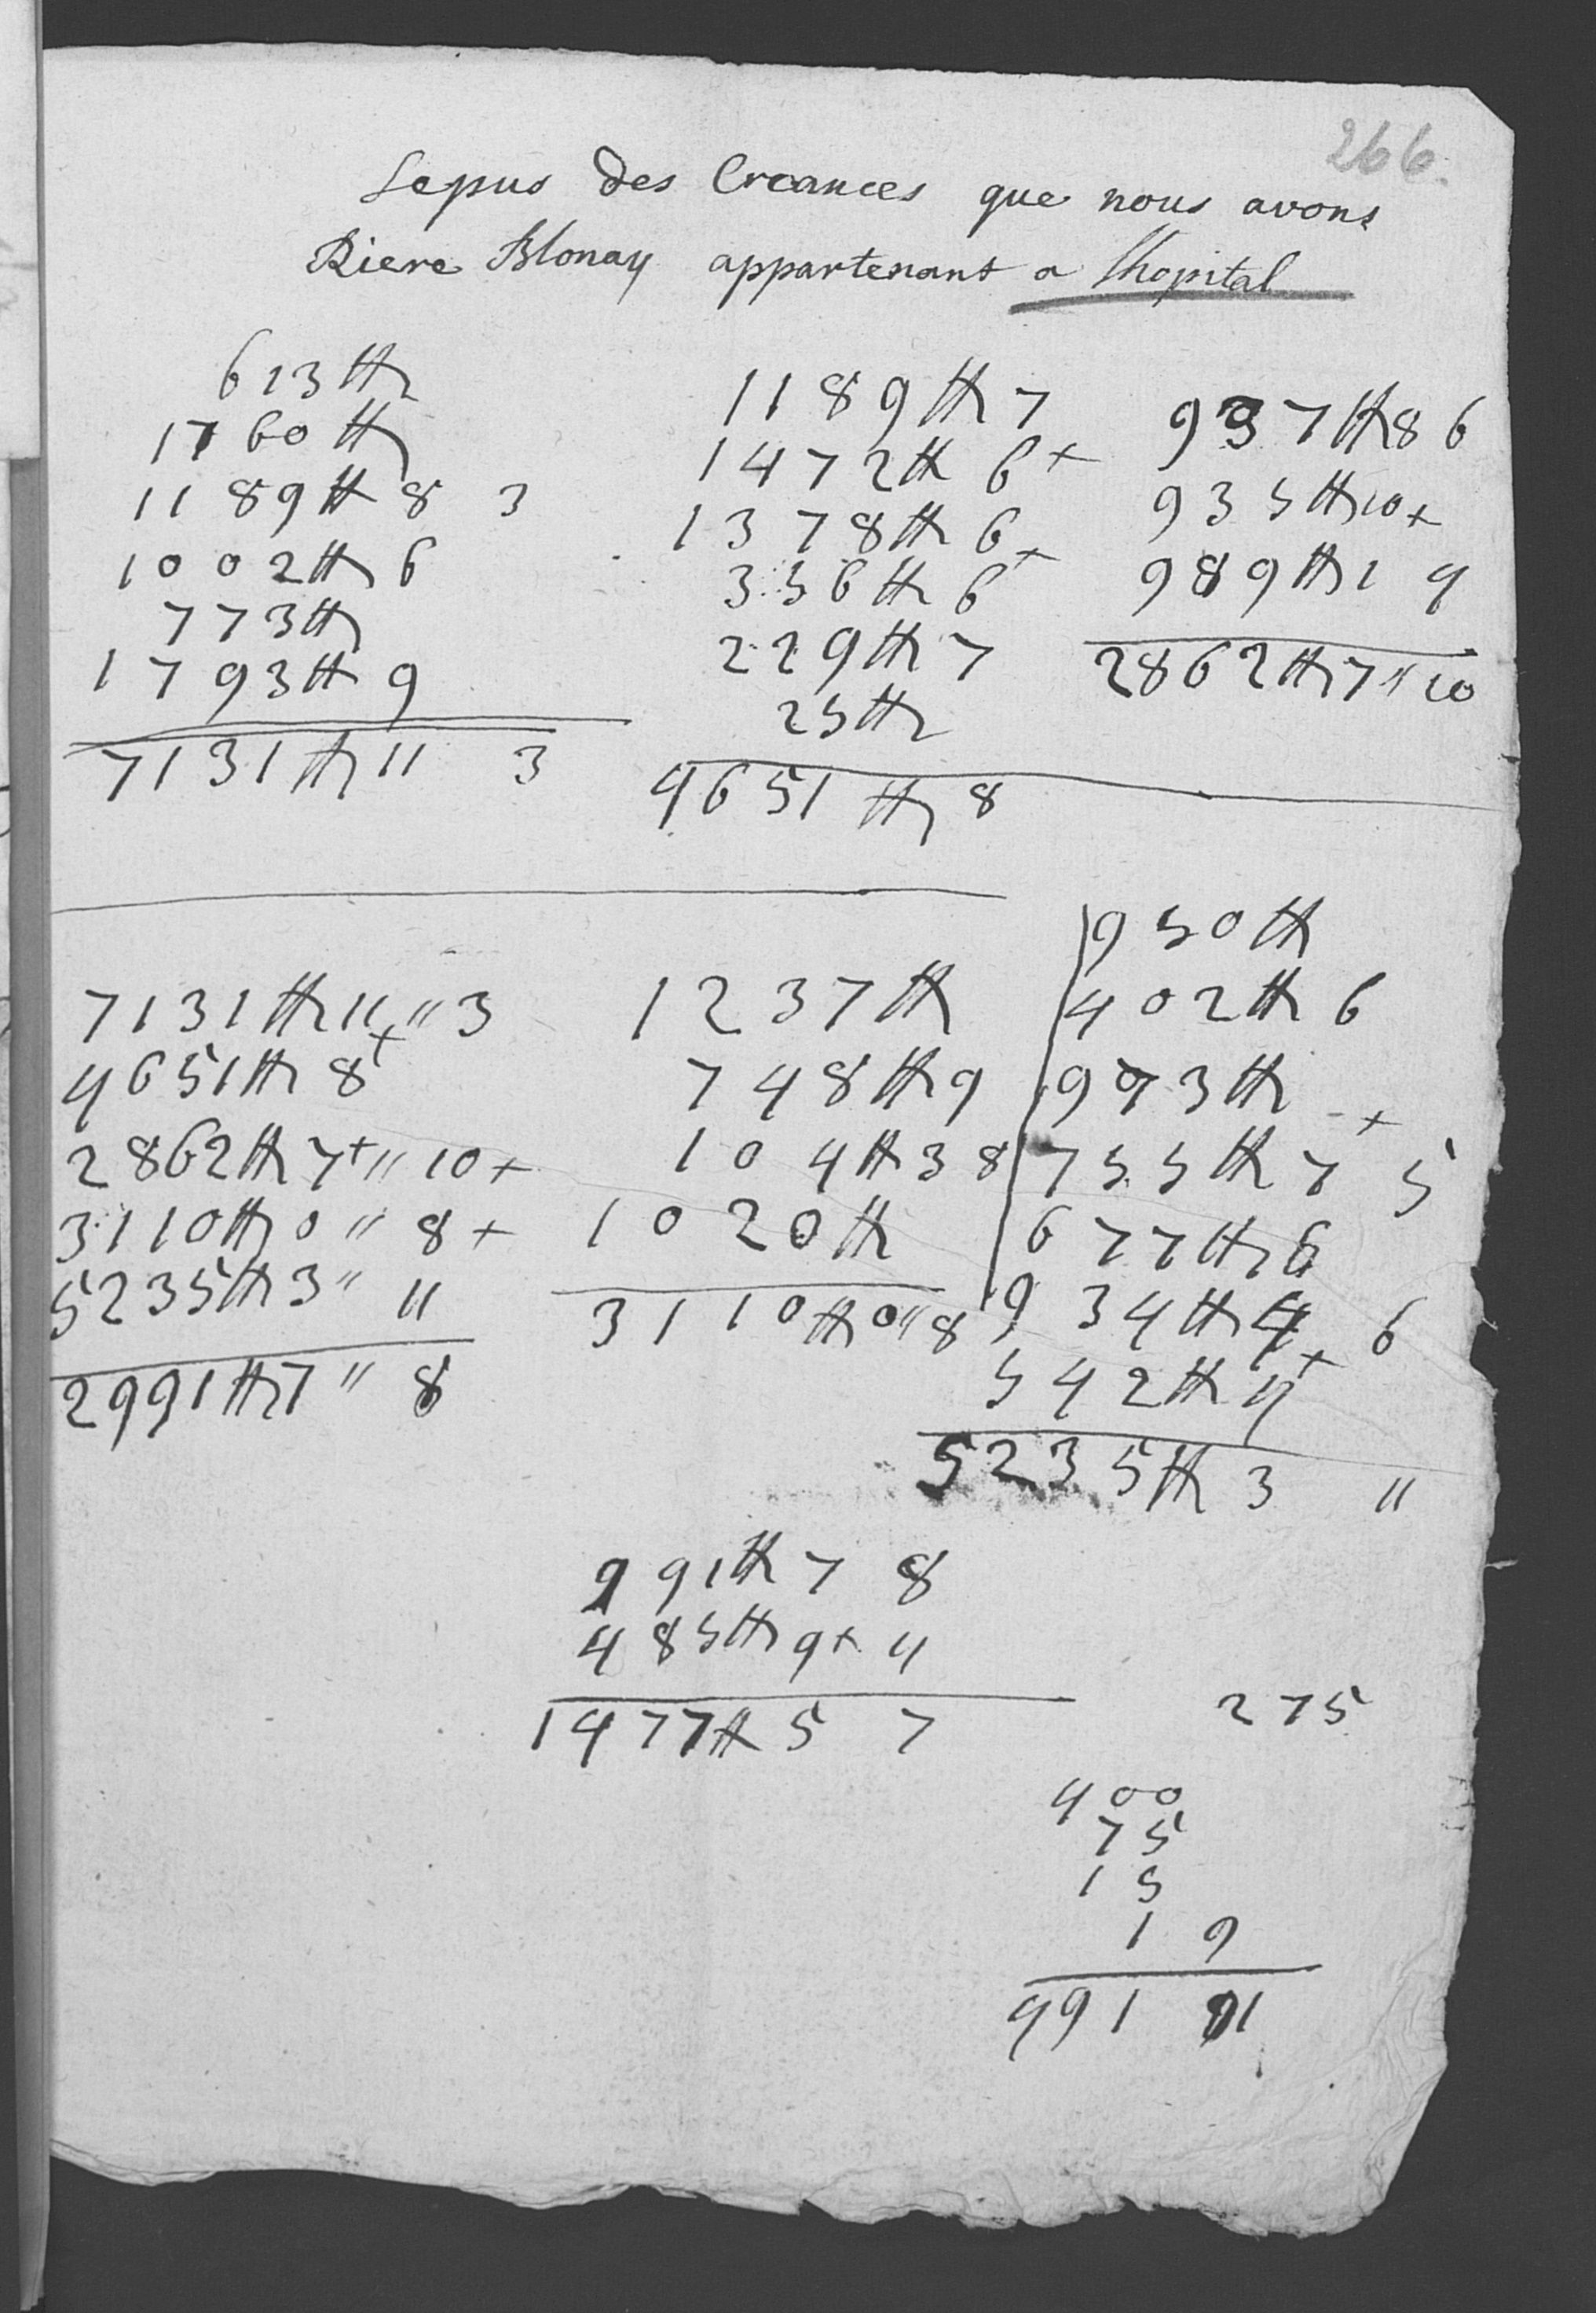 266.
Lepus des Creances que nous avons
Riere Blonay appartenant a lhopital
613 ₶
1760 ₶
1189 ₶ 8 3
1002 ₶ 6
773 ₶
1793 ₶ 9
7131 ₶ 11 3
1189 ₶ 7
1472 ₶ 6 +
1378 ₶ 6
356 ₶ 6 +
229 ₶ 7
25 ₶
4651 ₶ 8
937 ₶ 8 6
935 ₶ 10 +
989 ₶ 1 4
2862 ₶ 7 " 10
7131 ₶ 11 " 3
4651 ₶ 8 +
2862 ₶ 7 + " 10 +
3110 ₶ 0 " 8 +
5235 ₶ 3 " 11
2991 ₶ 7 " 8
1237 ₶
748 ₶ 9
104 ₶ 3 8
1020 ₶
3110 ₶ 0 " 8
950 ₶
402 ₶ 6
973 ₶
755 ₶ 7 + 5
677 ₶ 6
934 ₶ 4 6
542 ₶ 4 +
5235 ₶ 3 11
991 ₶ 7 8
485 ₶ 9 + 11
1477 ₶ 5 7
275
400
75
15
1 9
491 11